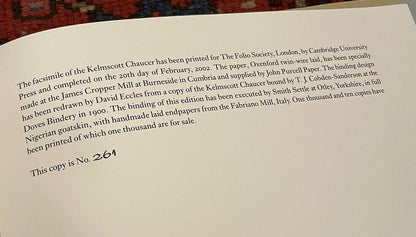 The facsimile of the Kelmscott Chaucer has been printed for The Folio Society, London, by Cambridge University
Press and completed on the 20th day of February, 2002. The paper, Oxenford twin-wire laid, has been specially
made at the James Cropper Mill at Burneside in Cumbria and supplied by John Purcell Paper. The binding design
has been redrawn by David Eccles from a copy of the Kelmscott Chaucer bound by T. J. Cobden-Sanderson at the
Doves Bindery in 1900. The binding of this edition has been executed by Smith Settle at Otley, Yorkshire, in full
Nigerian goatskin, with handmade laid endpapers from the Fabriano Mill, Italy. One thousand and ten copies have
been printed of which one thousand are for sale.
This copy is No. 261